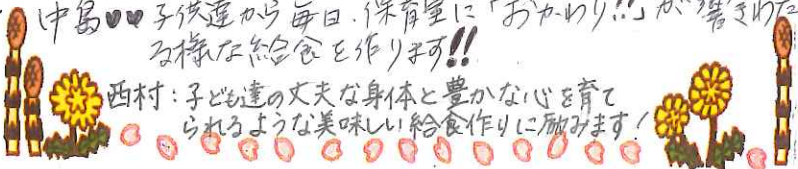 中島♥♥子供達から毎日、保育室に「おかわり!!」が響きわた
る様な給食を作ります!!
西村:子ども達の丈夫な身体と豊かな心を育て
られるような美味しい給食作りに励みます!